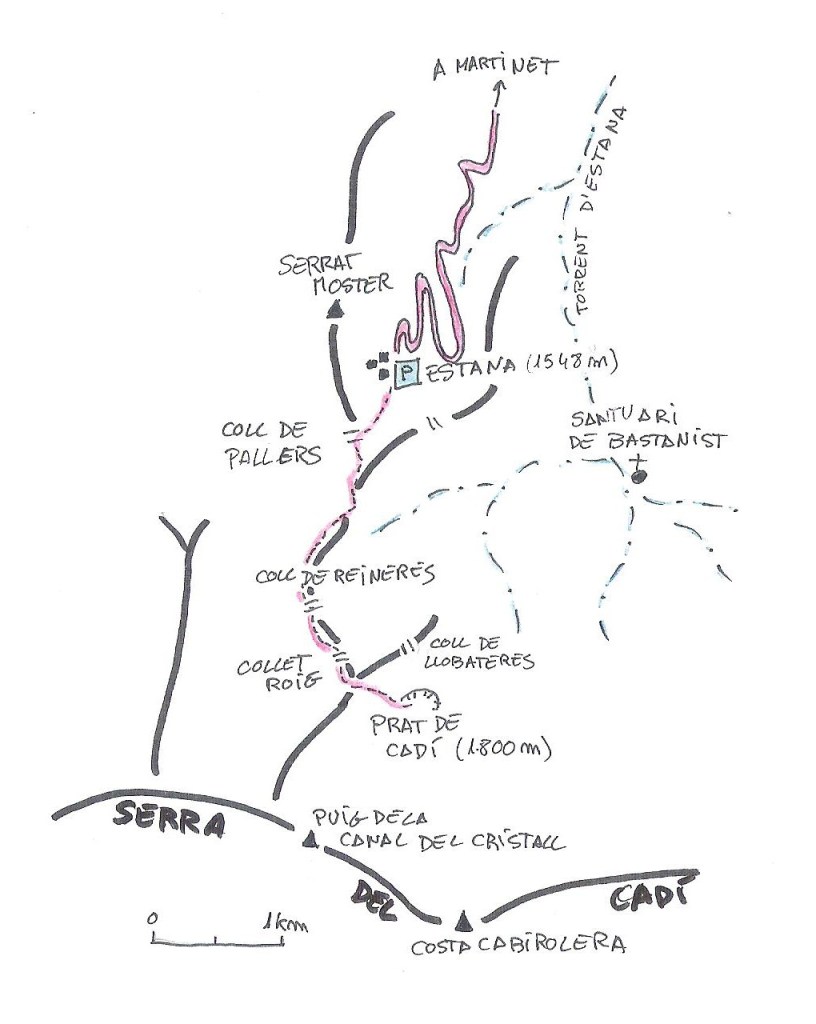 A MARTINET
TORRENT D'ESTANA
SERRAT
MOSTER
P
ESTANA (1548m)
COLL DE
PALLERS
SANTUARI
DE BASTANIST
COLL DE REINERES
COLL DE
LLOBATERES
COLLET
ROIG
PRAT DE
CADÍ (1.800m)
SERRA
PUIG DE LA
CANAL DEL CRISTALL
DEL
CADÍ
0 1km
COSTA CABIROLERA